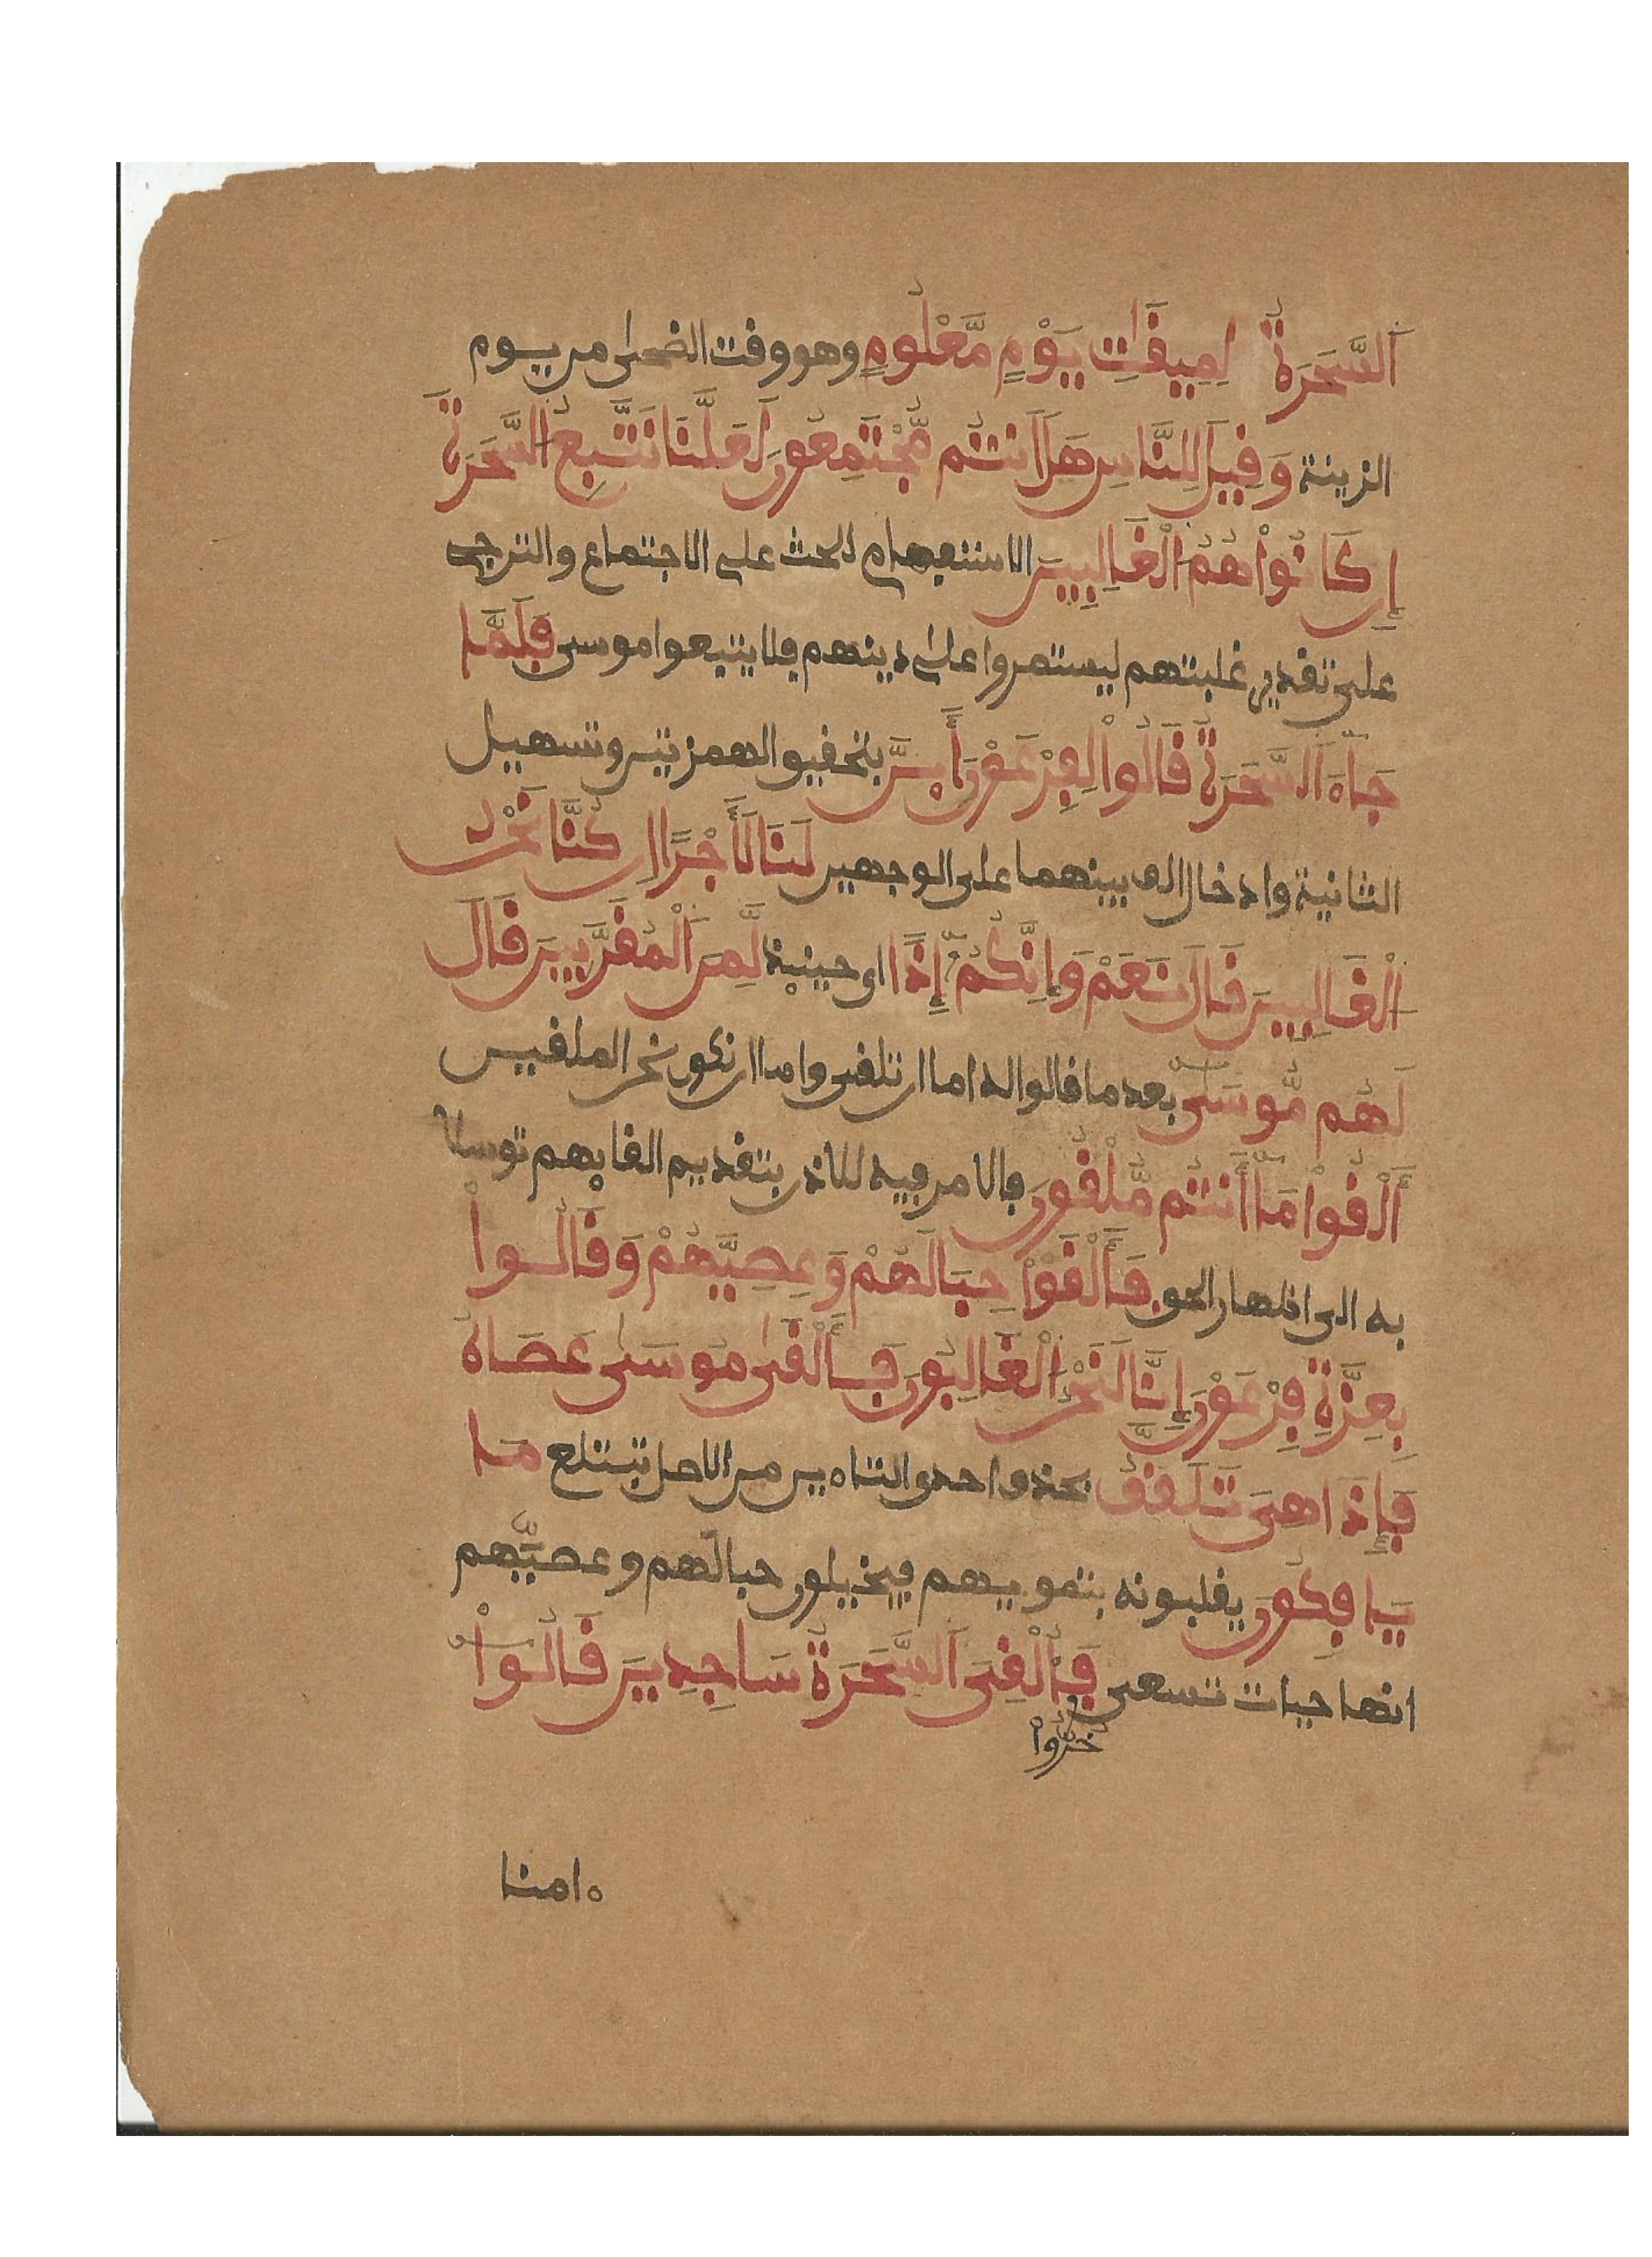 اَلسَّحَرَةُ لِمِيقَاتِ يَوْمٍ مَّعْلُومٍ وهو وقت الضحى من يوم
الزينة وَقِيلَ لِلنَّاسِ هَلَ اَنتُم مُّجْتَمِعُونَ لَعَلَّنَا نَتَّبِعُ السَّحَرَةَ
إِن كَانُواْ هُمُ الْغَالِبِينَ الاستفهام للحث على الاجتماع والترجى
على تقدير غلبتهم ليستمروا على دينهم فلا يتبعوا موسى فَلَمَّا
جَاءَ اَلسَّحَرَةُ قَالُواْ لِفِرْعَوْنَ أَىِٕنَّ بتحقيق الهمزتين وتسهيل
الثانية وادخال الف بينهما على الوجهين لَنَا لَأَجْرًا اِن كُنَّا نَحْنُ
اَلْغَالِبِينَ قَالَ نَعَمْ وَإِنَّكُمُ إِذًا اى حينئذ لَّمِنَ اَلْمُقَرَّبِينَ قَالَ
لَهُم مُّوسَىٰ بعد ما قالوا له اما ان تلقى واما ان نكون نحن الملقين
أَلْقُواْ مَا أَنتُم مُّلْقُونَ فالامر فيه للاذن بتقديم القايهم توسلا
به الى اظهار الحق فَأَلْقَوْاْ حِبَالَهُمْ وَعِصِيَّهُمْ وَقَالُواْ
بِعِزَّةِ فِرْعَوْنَ إِنَّا لَنَحْنُ اَلْغَالِبُونَ فَأَلْقَىٰ مُوسَىٰ عَصَاهُ
فَإِذَا هِىَ تَلَقَّفُ بحذف احدى التاءين من الاصل تبتلع مَا
يَافِكُونَ يقلبونه بتمويههم فيخيلون حبالَهم وعصيَّهم
انها حيات تسعى فَأُلْقِىَ اَلسَّحَرَةُ سَاجِدِينَ قَالُواْ
خَرُّواْ
ءامنا